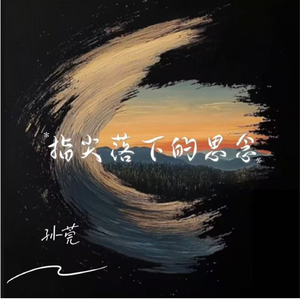 *指尖落下的思念*
孙莞